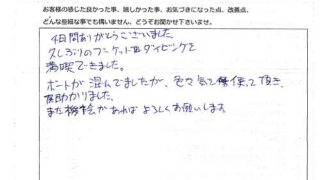 お客様の感じした良かった事、嬉しかった事、お気づきになった点、改善点、
どんな些細な事でも構いません、どうぞお聞かせ下さいませ。
4日間ありがとうございました。
久しぶりのプーケットでダイビングを
満喫できました。
ボートが混んでましたが、色々気を使って頂き、
助かりました。
また機会があればよろしくお願いします。